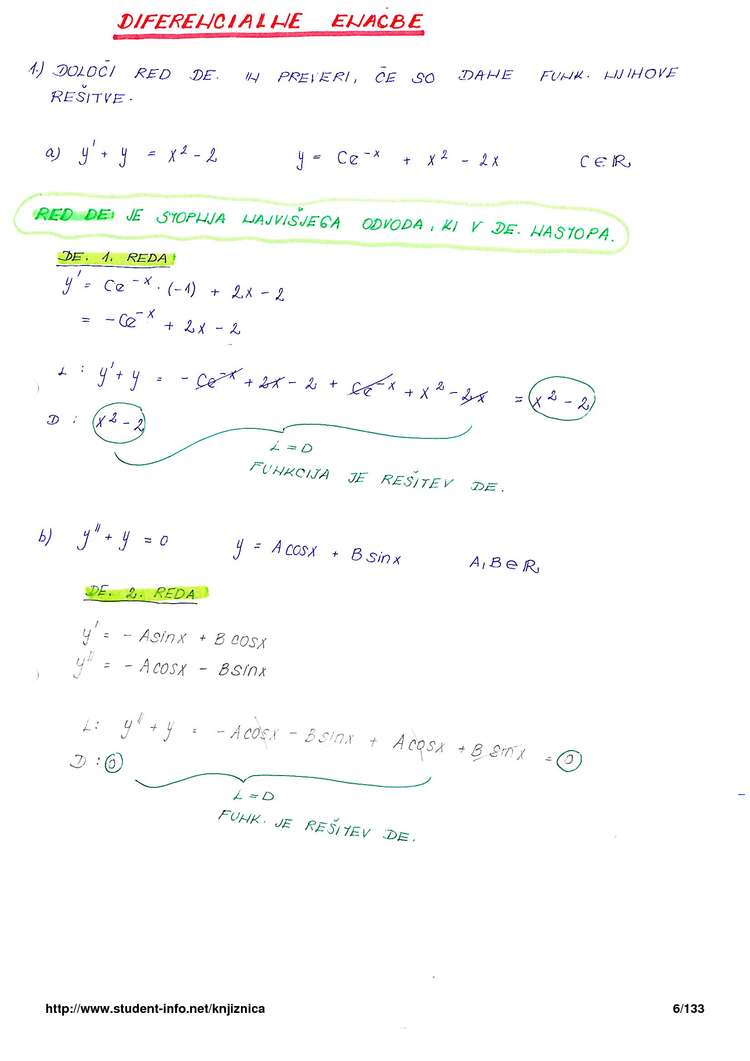 DIFERENCIALNE ENAČBE
1.) DOLOČI RED DE. IN PREVERI, ČE SO DANE FUNK. NJIHOVE
REŠITVE.
a) y' + y = x² - 2 y = Ce⁻ˣ + x² - 2x C∈ℝ
RED DE: JE STOPNJA NAJVIŠJEGA ODVODA, KI V DE. NASTOPA.
DE. 1. REDA:
y' = Ce⁻ˣ · (-1) + 2x - 2
= -Ce⁻ˣ + 2x - 2
L: y' + y = - Ce⁻ˣ + 2x - 2 + Ce⁻ˣ + x² - 2x = x² - 2
D: x² - 2
L = D
FUNKCIJA JE REŠITEV DE.
b) y'' + y = 0 y = A cosx + B sinx A, B ∈ ℝ
DE. 2. REDA
y' = - Asinx + B cosx
y'' = - A cosx - B sinx
L: y'' + y = - A cosx - B sinx + A cosx + B sinx = 0
D: 0
L = D
FUNK. JE REŠITEV DE.
http://www.student-info.net/knjiznica 6/133